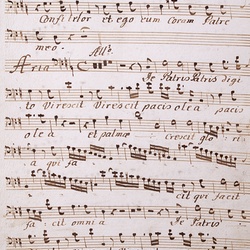 Confitebor et ego eum Coram Patre
meo. All:o
Aria Te Patris Patris Dige
to Virescit Virescit pacis olea pacis
olea et palmæ Crescit glo ri
a qui fa
cit qui facit
fa cit omnia Te Patris